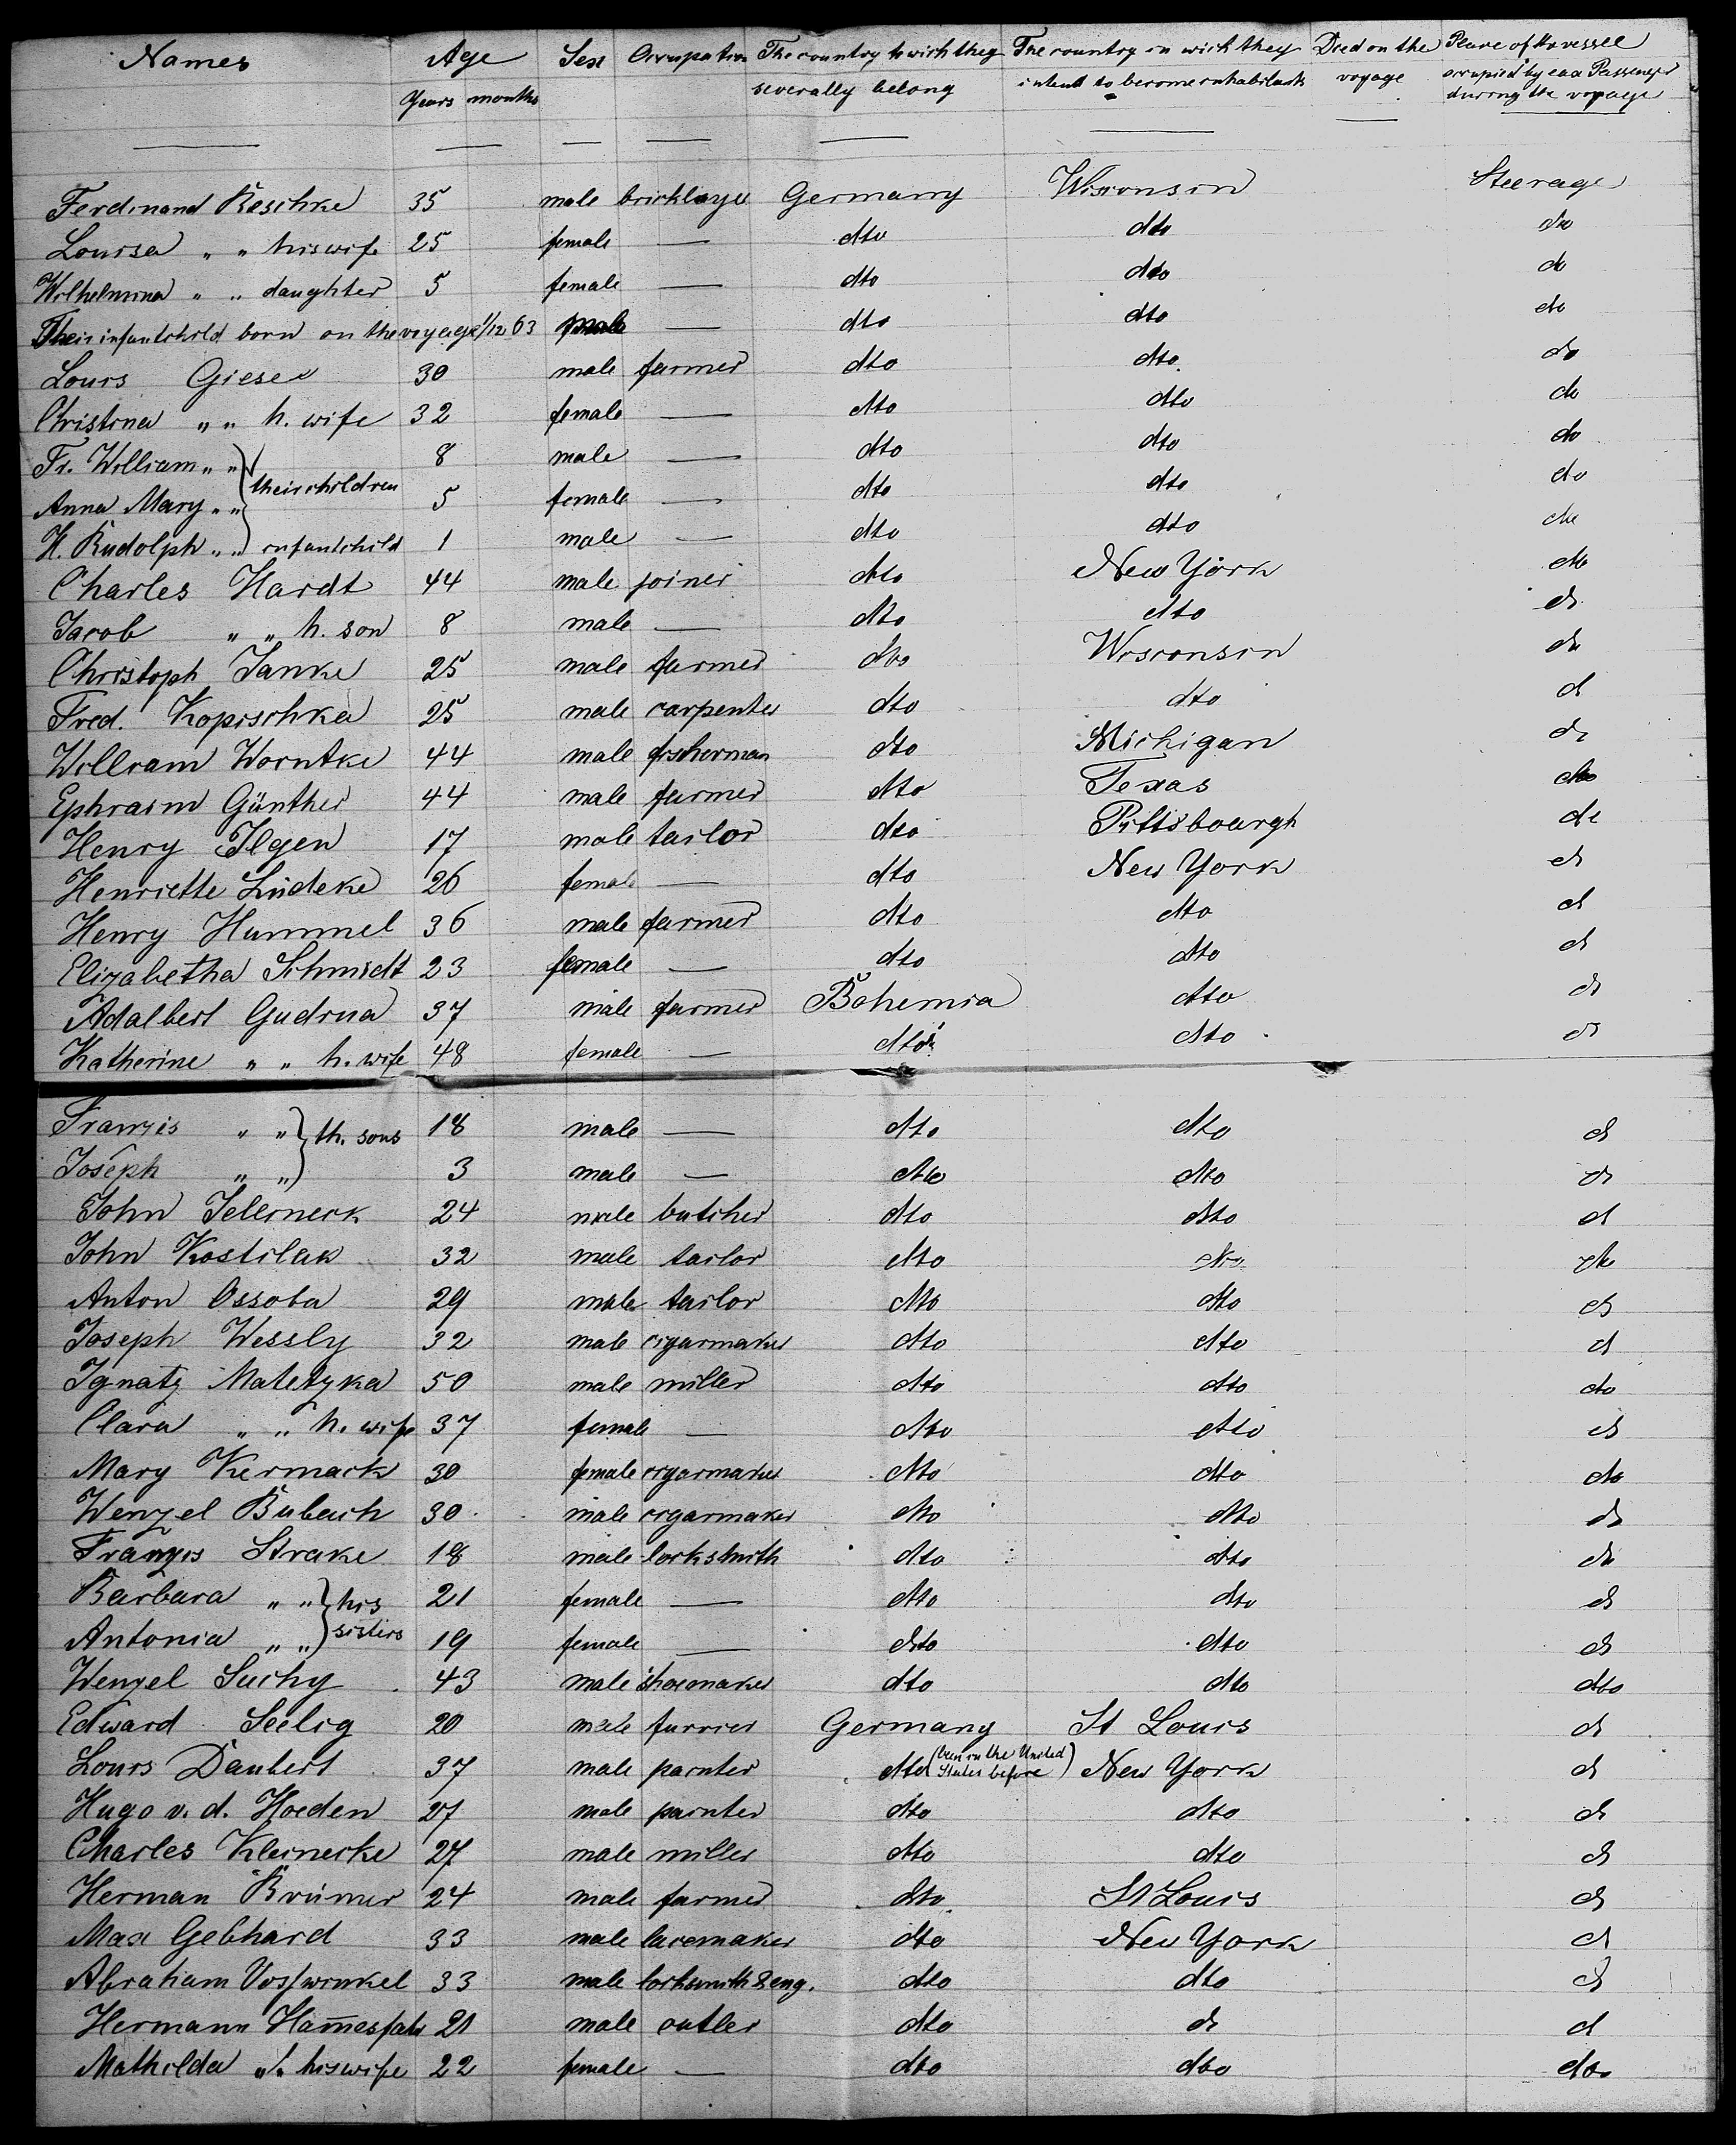 Names Age Sex Occupation The country to wich they The country in wich they Died on the Place of the vessel
Years months severally belong intend to become inhabitants voyage occupied by each Passenger
during the voyage
Ferdinand Reschke 35 male bricklayer Germany Wisconsin Steerage
Louisa " " his wife 25 female — dto dto do
Wilhelmina " " daughter 5 female — dto dto do
Their infantchild born on the voyage 1/12 63 — dto dto do
Louis Giese 30 male farmer dto dto do
Christina " " h. wife 32 female — dto dto do
Fr. William " " 8 male — dto dto do
Anna Mary " " their children 5 female — dto dto do
H. Rudolph " " infantchild 1 male — dto dto do
Charles Hardt 44 male joiner dto New York do
Jacob " " h. son 8 male — dto dto do
Christoph Janke 25 male farmer dto Wisconsin do
Fred. Kopischka 25 male carpenter dto dto do
William Worntke 44 male fisherman dto Michigan do
Ephraim Günther 44 male farmer dto Texas do
Henry Ilgen 17 male tailor dto Pittsbourgh do
Henriette Lüdeke 26 female — dto New York do
Henry Hummel 36 male farmer dto dto do
Elizabetha Schmidt 23 female — dto dto do
Adalbert Gudrna 37 male farmer Bohemia dto do
Katherine " " h. wife 48 female — dto dto do
Franzis " " th. sons 18 male — dto dto do
Joseph " " 3 male — dto dto do
John Jelerneck 24 male butcher dto dto do
John Kostilak 32 male tailor dto dto do
Anton Ossoba 29 male tailor dto dto do
Joseph Wessly 32 male cigarmaker dto dto do
Ignatz Matetzka 50 male miller dto dto do
Clara " " h. wife 37 female — dto dto do
Mary Kermack 30 female cigarmaker dto dto do
Wenzel Bubach 30 male cigarmaker dto dto do
Franzis Strake 18 male locksmith dto dto do
Barbara " " his 21 female — dto dto do
Antonia " " sisters 19 female — dto dto do
Wenzel Suchy 43 male shoemaker dto dto dto
Edward Seelig 20 male furrier Germany St Louis do
Louis Daubert 37 male painter dto (been in the United States before) New York do
Hugo v. d. Hoeden 27 male painter dto dto do
Charles Kleinecke 27 male miller dto dto do
Herman Brümer 24 male farmer dto St Louis do
Max Gebhard 33 male lacemaker dto New York do
Abraham Vosswinkel 33 male locksmith & eng. dto dto do
Hermann Ham̅esfahr 21 male cutler dto do do
Mathilda " " his wife 22 female — dto dto dto